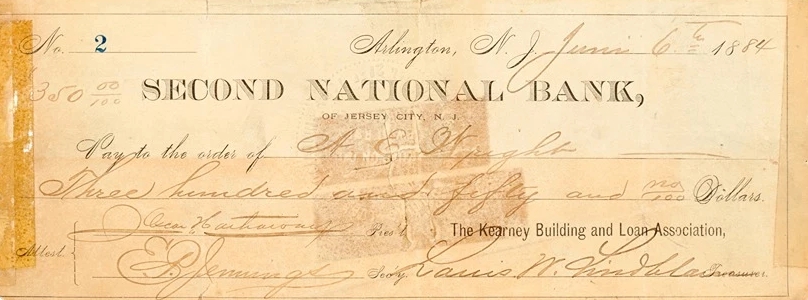 No. 2 Arlington, N. J. June 6th 1884
$350 00/100 SECOND NATIONAL BANK,
OF JERSEY CITY, N. J.
Pay to the order of A E Wright
Three hundred and fifty and no/100 Dollars.
Oscar Pres't. The Kearney Building and Loan Association,
Attest. E. P. Jennings Sec'y. Louis W. Lindblom Treasurer.